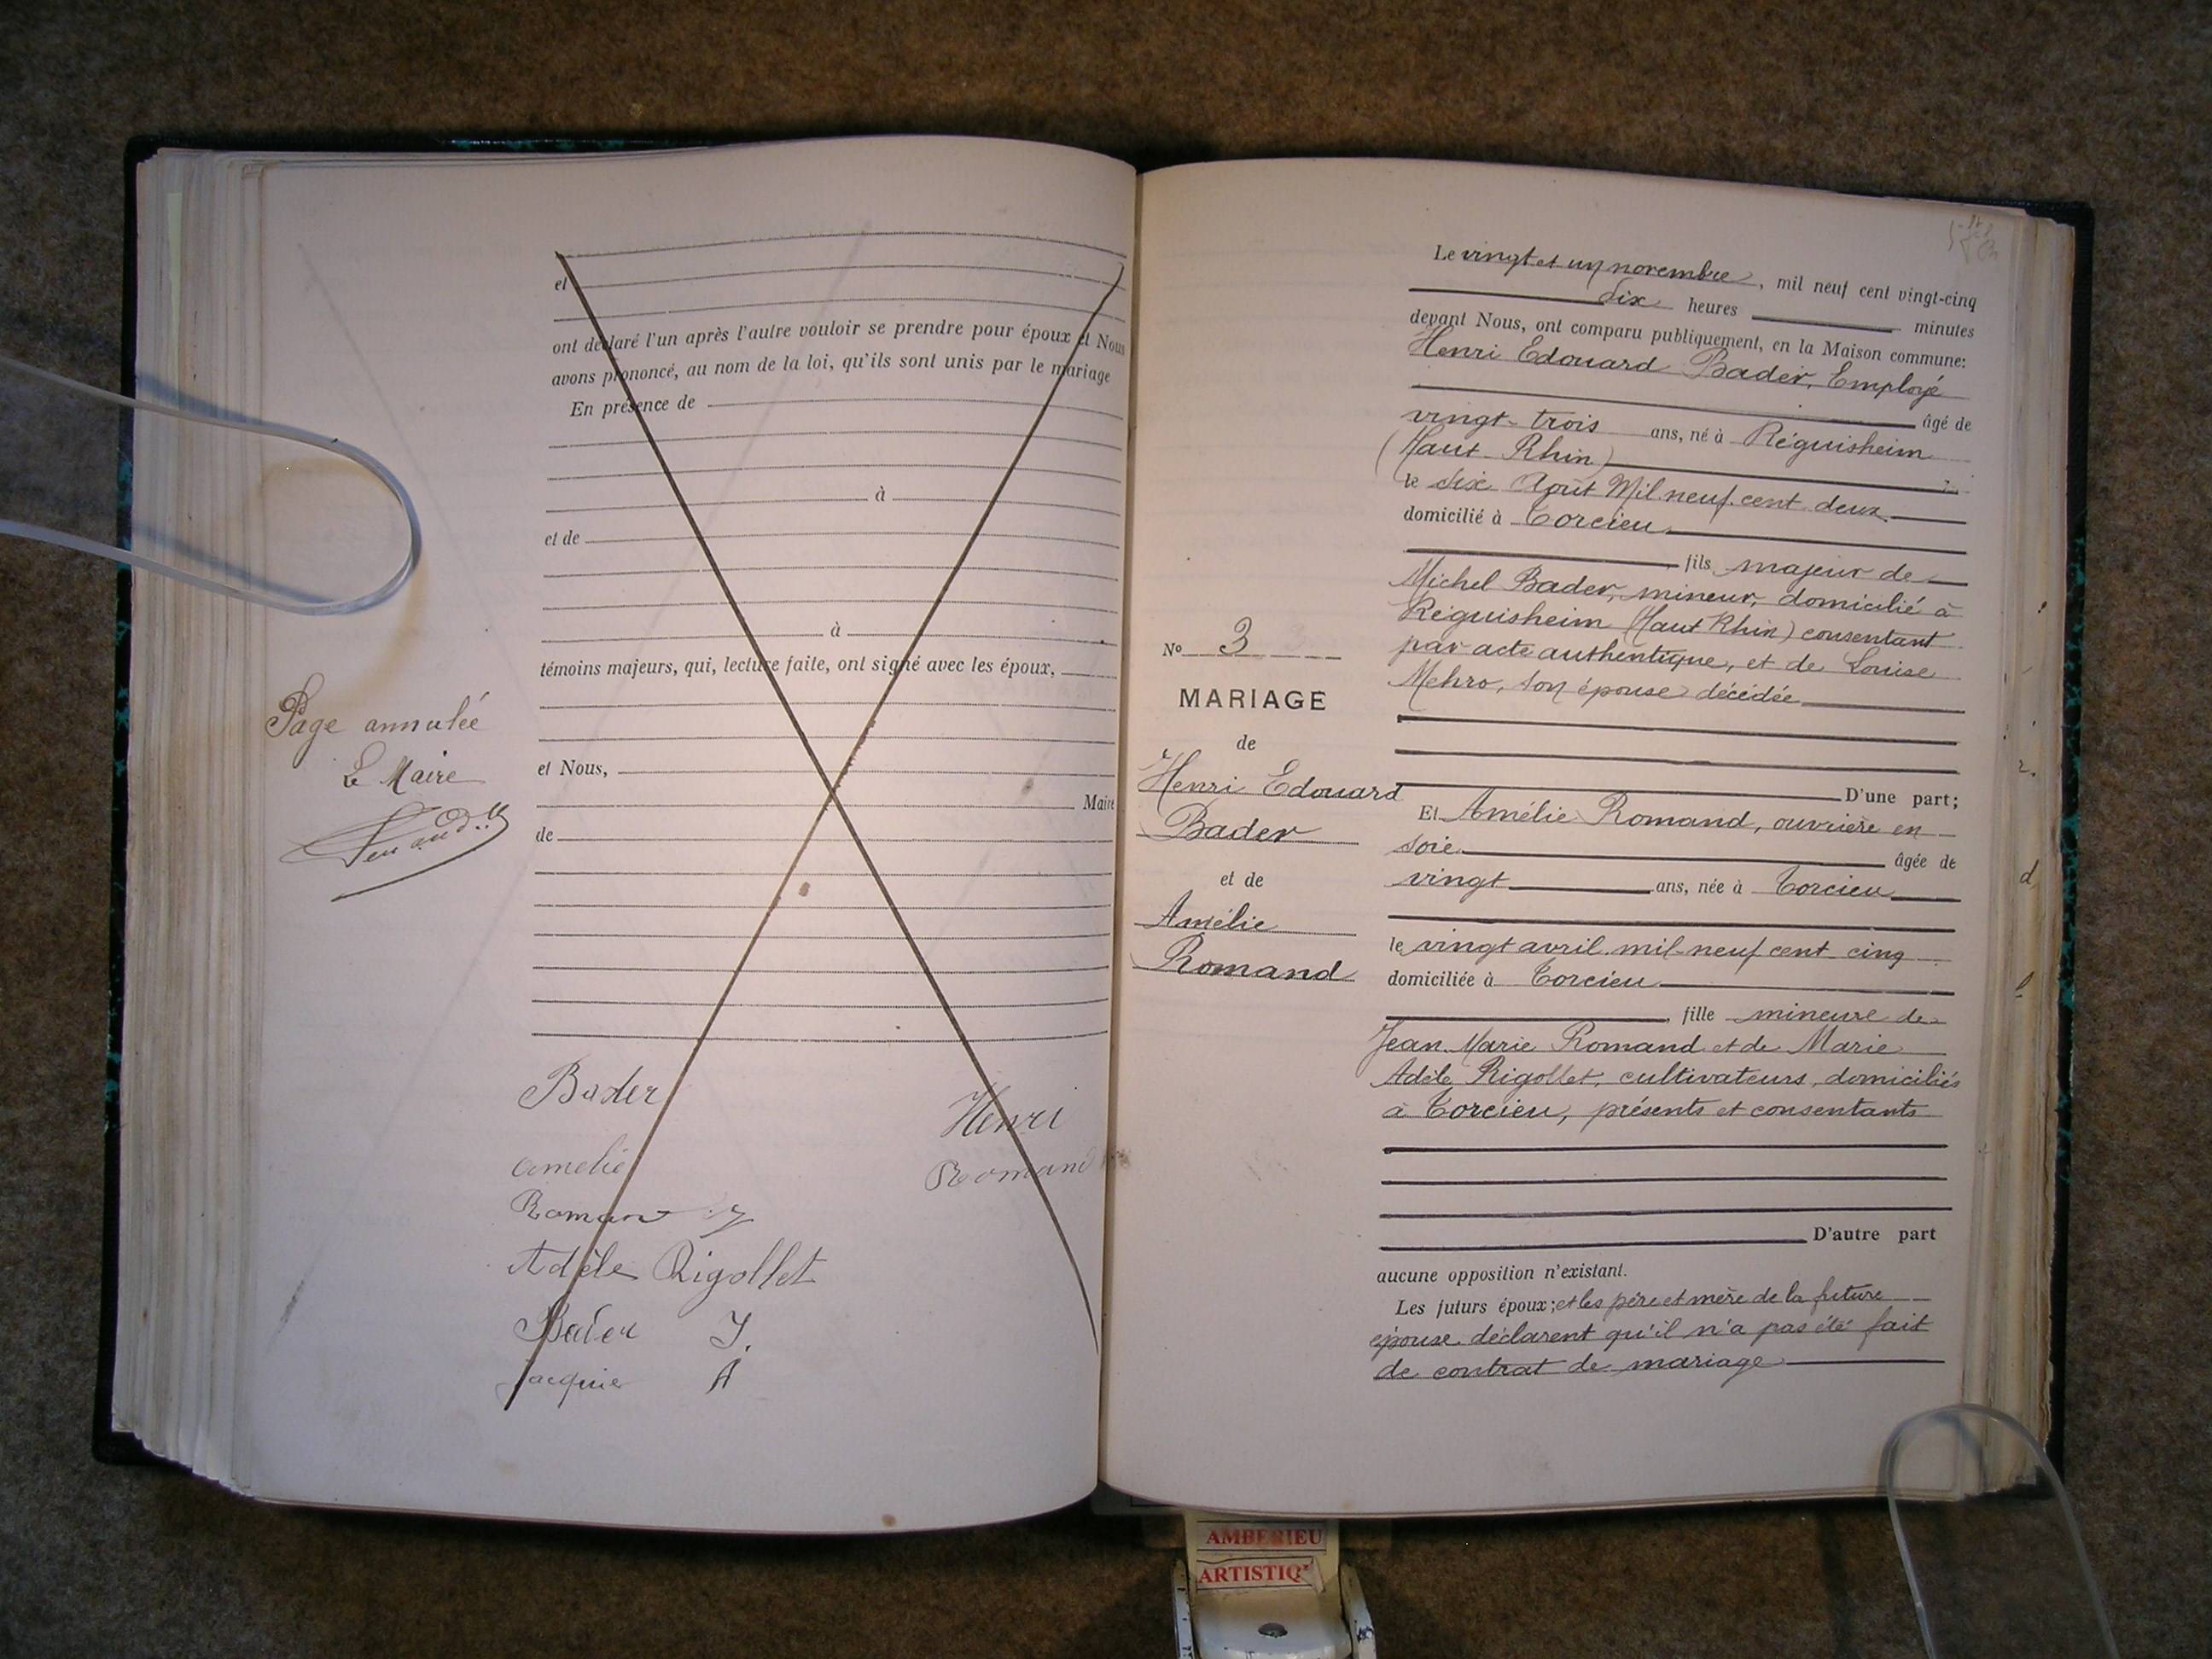 et
ont déclaré l'un après l'autre vouloir se prendre pour époux et Nous
avons prononcé, au nom de la loi, qu'ils sont unis par le mariage
En présence de
à
et de
à
témoins majeurs, qui, lecture faite, ont signé avec les époux,
Page annulée
Le Maire
et Nous,
Maire
de
Bader Henri
Amelie Romand
Romand
Adèle Rigollet
Bader J.
Jacquier A
Le vingt et un novembre, mil neuf cent vingt-cinq
dix heures minutes
devant Nous, ont comparu publiquement, en la Maison commune:
Henri Edouard Bader, Employé
âgé de
vingt-trois ans, né à Réguisheim
(Haut-Rhin)
le six Août Mil neuf cent deux
domicilié à Torcieu
fils majeur de
Michel Bader, mineur, domicilié à
Réguisheim (Haut Rhin) consentant
par acte authentique, et de Louise
Mehro, son épouse décédée
D'une part;
Et Amélie Romand, ouvrière en
soie âgée de
vingt ans, née à Torcieu
le vingt avril mil-neuf cent cinq
domiciliée à Torcieu
fille mineure de
Jean Marie Romand et de Marie
Adèle Rigollet, cultivateurs, domiciliés
à Torcieu, présents et consentants
D'autre part
aucune opposition n'existant.
Les futurs époux; et les père et mère de la future
épouse déclarent qu'il n'a pas été fait
de contrat de mariage
No 3
MARIAGE
de
Henri Edouard
Bader
et de
Amélie
Romand
AMBERIEU
ARTISTIQ